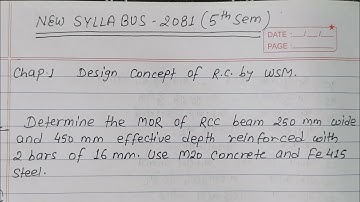 NEW SYLLABUS - 2081 (5th Sem)
DATE: __/__/__
PAGE:
Chap.1 Design Concept of R.C. by WSM.
Determine the MOR of RCC beam 250 mm wide
and 450 mm effective depth reinforced with
2 bars of 16 mm. Use M20 concrete and Fe 415
steel.